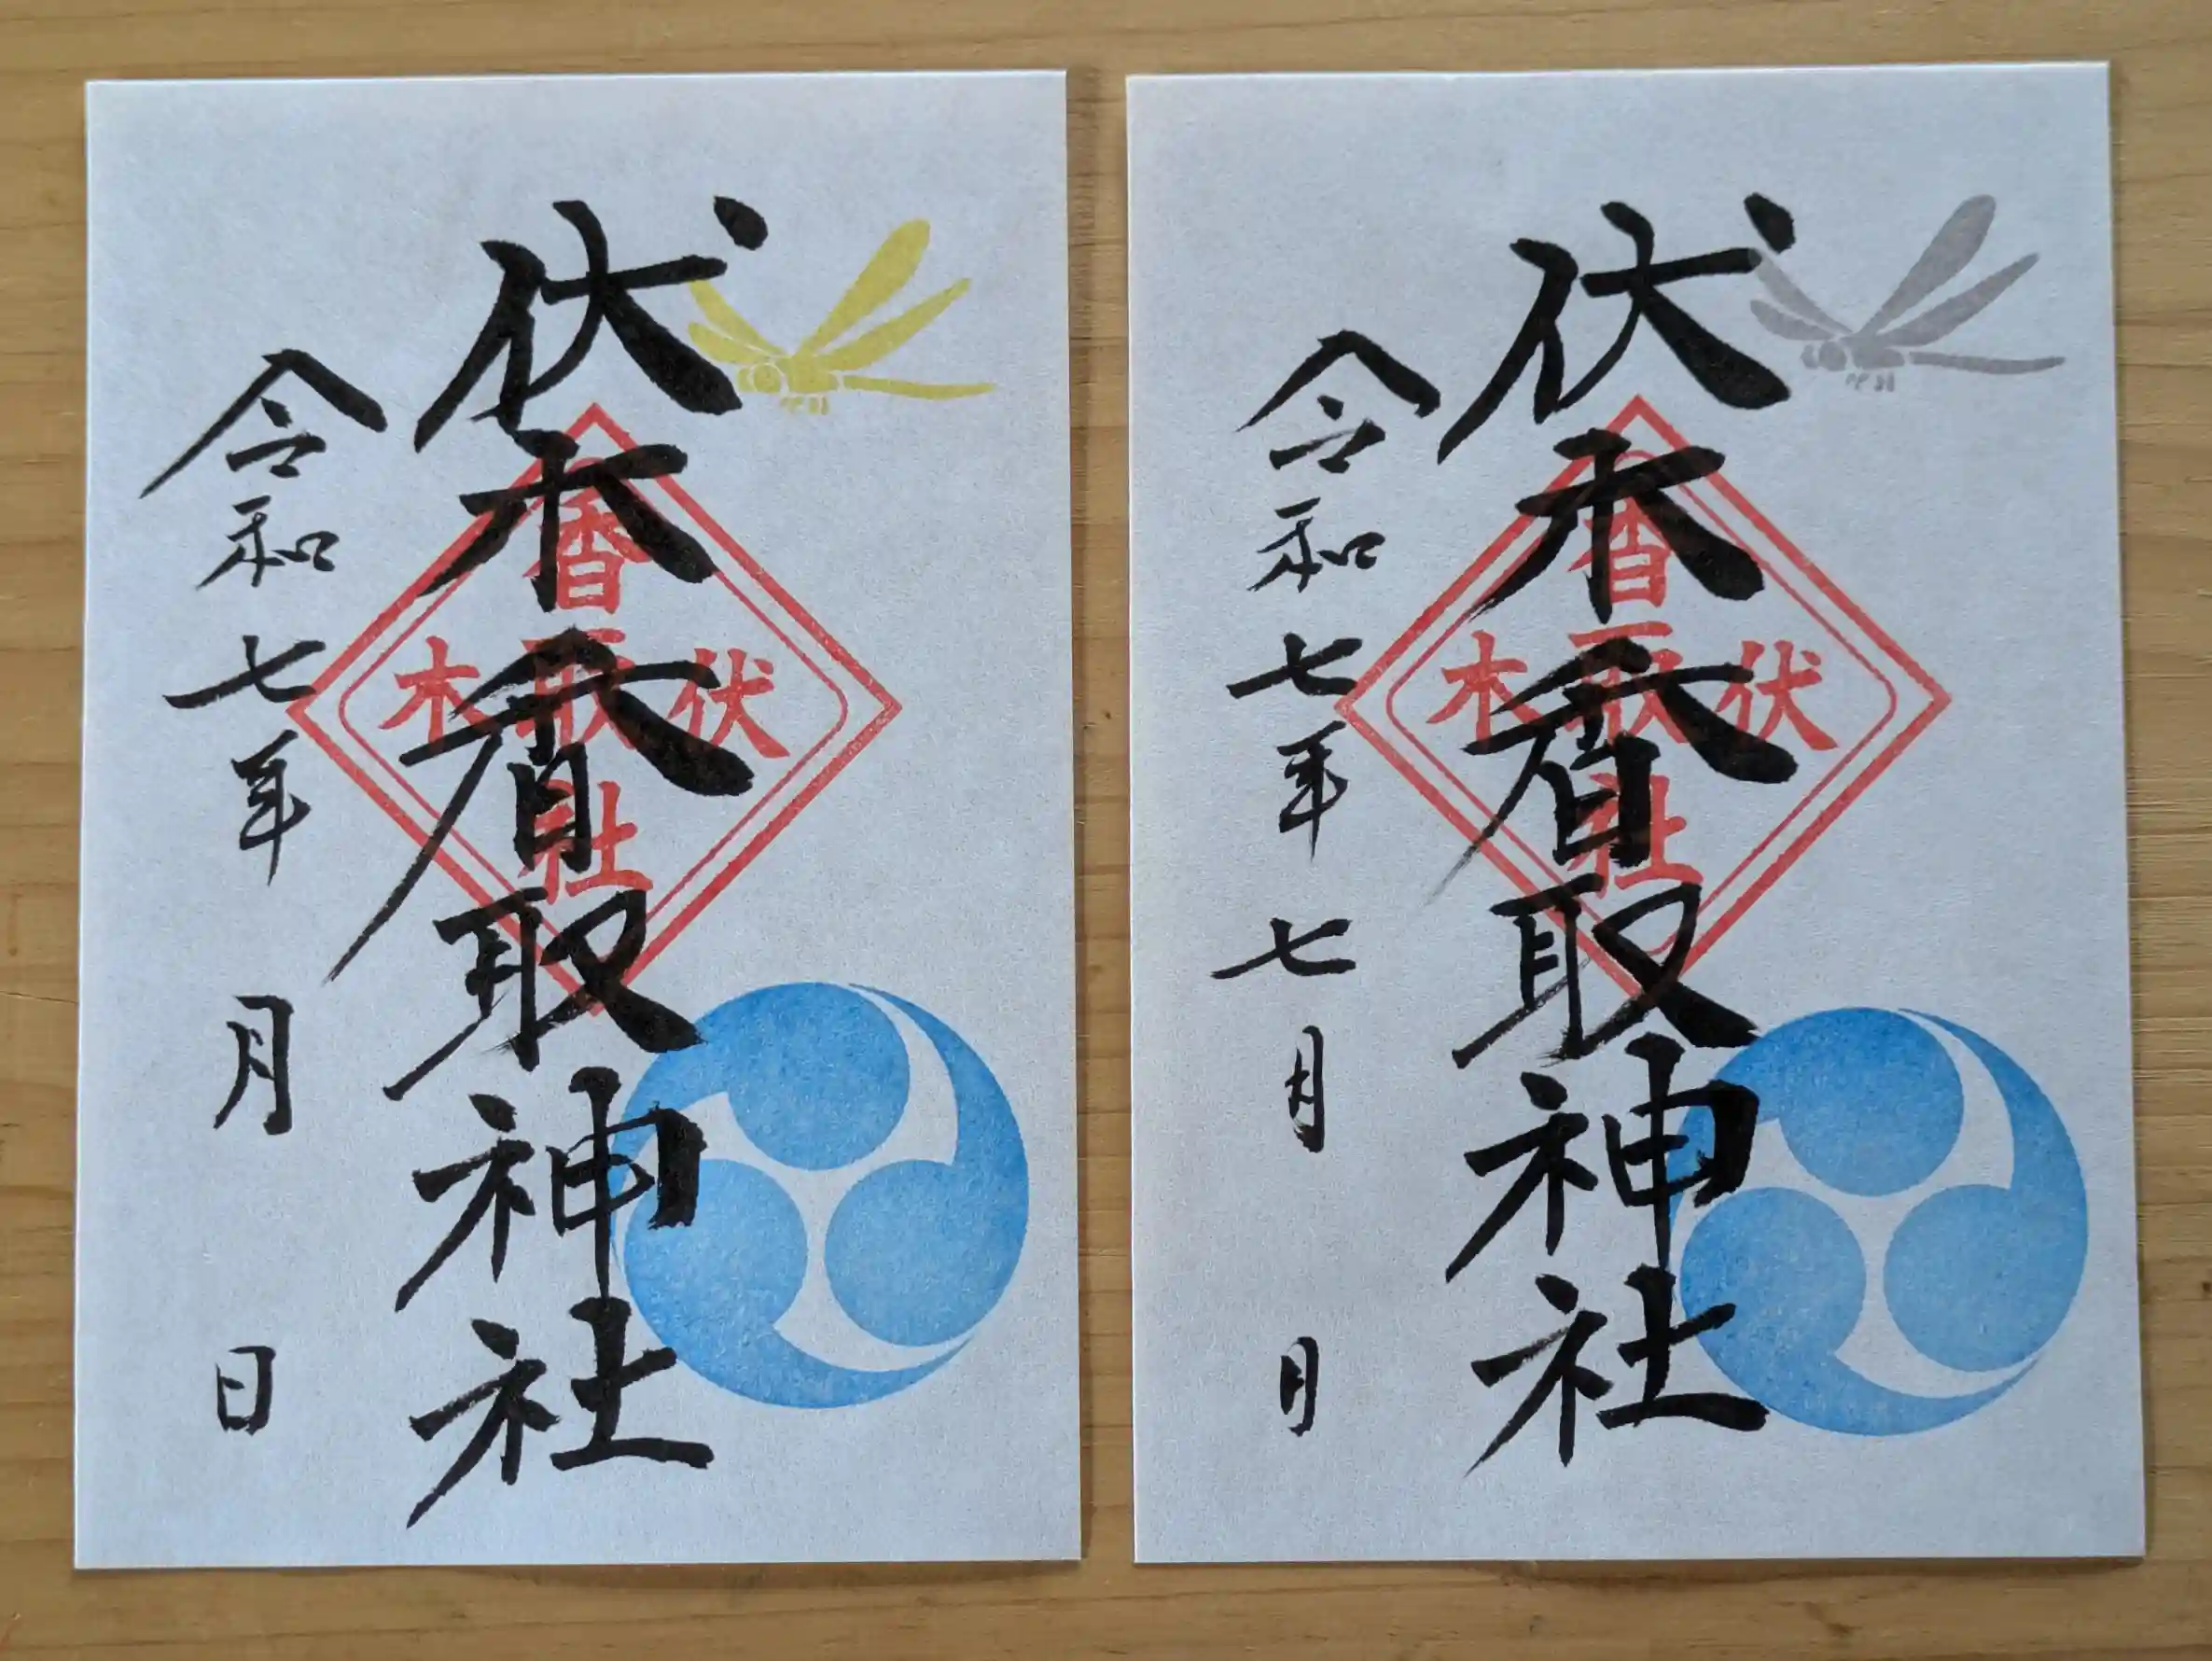 伏木香取神社
伏木
香取社
令和七年 月 日
伏木香取神社
伏木
香取社
令和七年七月 日